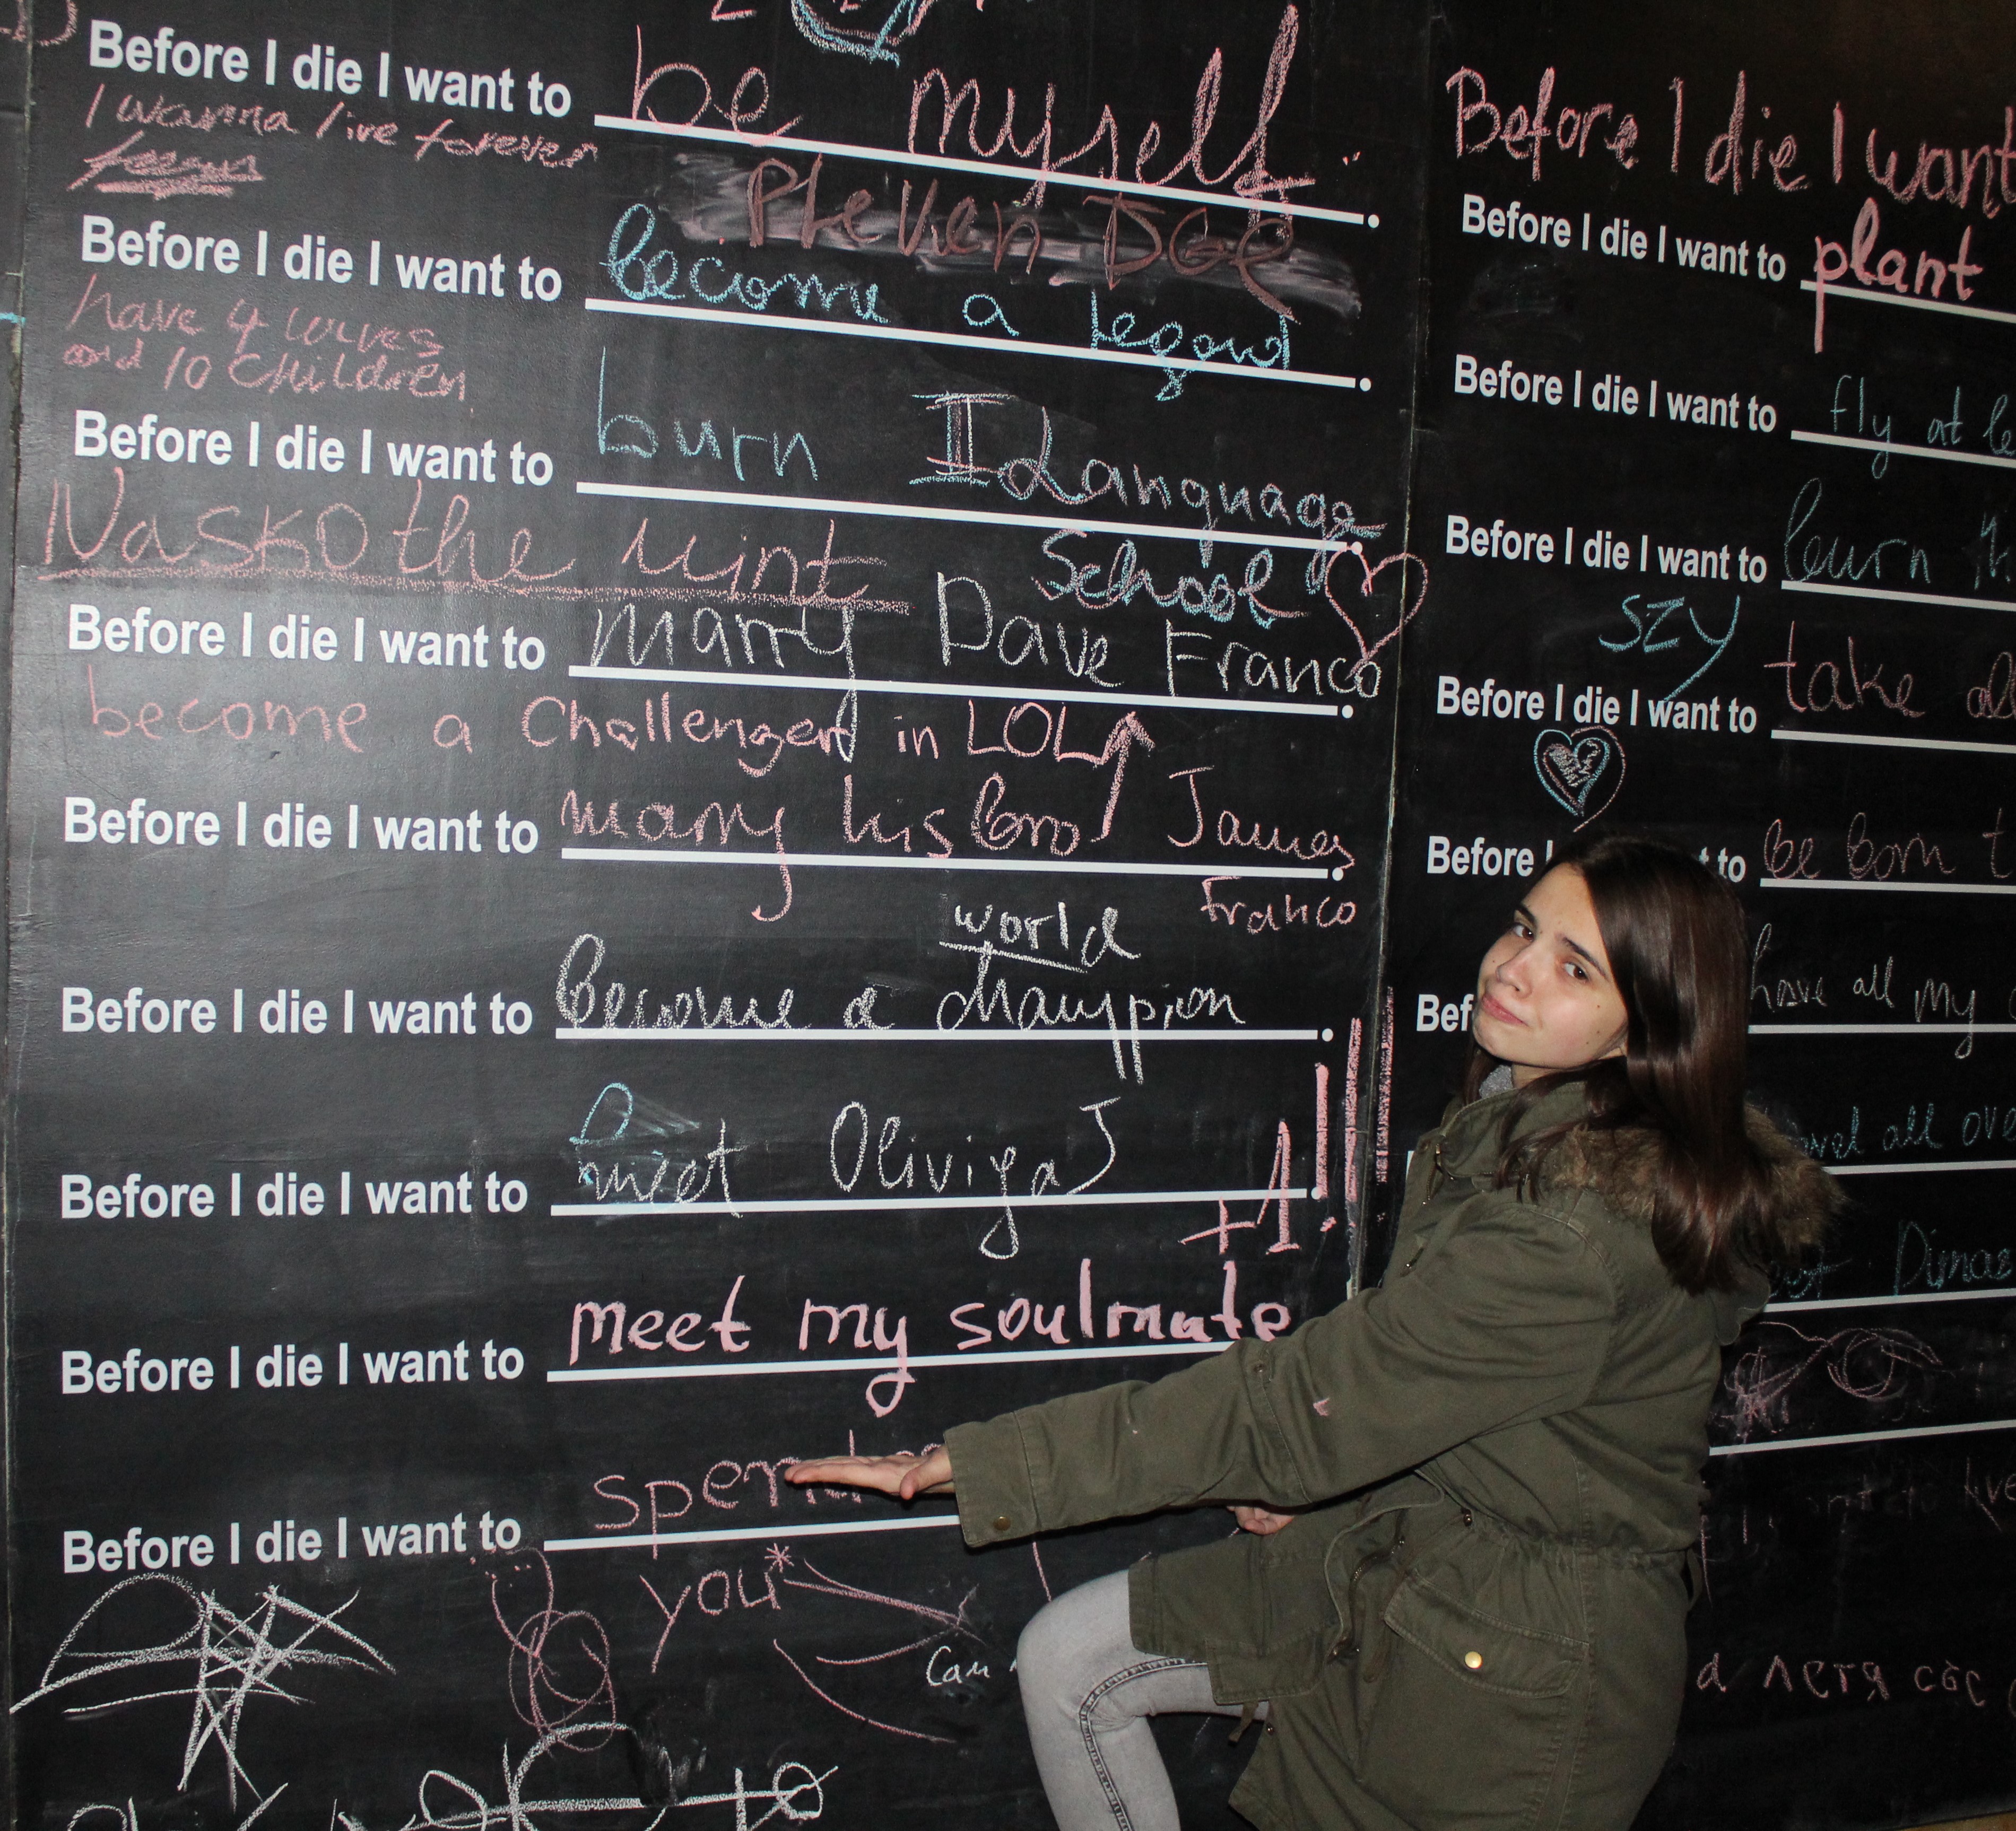 Before I die I want to be myself.
I wanna live forever
Pleven
Before I die I want to become a legend.
have 4 wives
and 10 children
Before I die I want to burn I Language.
School
Nasko the
Before I die I want to marry Dave Franco.
become a Challenger in LOL
Before I die I want to marry his bro James.
Franco
world
Before I die I want to become a champion.
Before I die I want to meet Oliviya J.
+1!
Before I die I want to meet my soulmate
Before I die I want to
you*
Сам
Before I die I want
Before I die I want to plant
Before I die I want to fly at
Before I die I want to
SZY
Before I die I want to take
Before I to be born t
have all my
all ove
Dimas
летя със